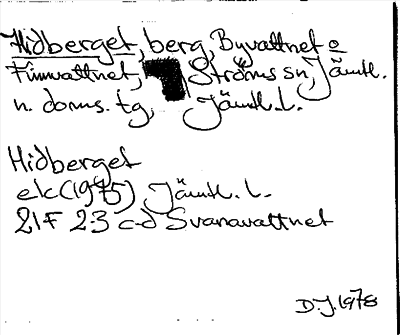 Hidberget, berg, Byvattnet o
Finnvattnet, Ströms sn, Jämtl.
n. doms. tg, Jämtl. l.
Hidberget
ek (1975) Jämtl. l.
21F 2-3 c-d Svanavattnet
D.J. 1978